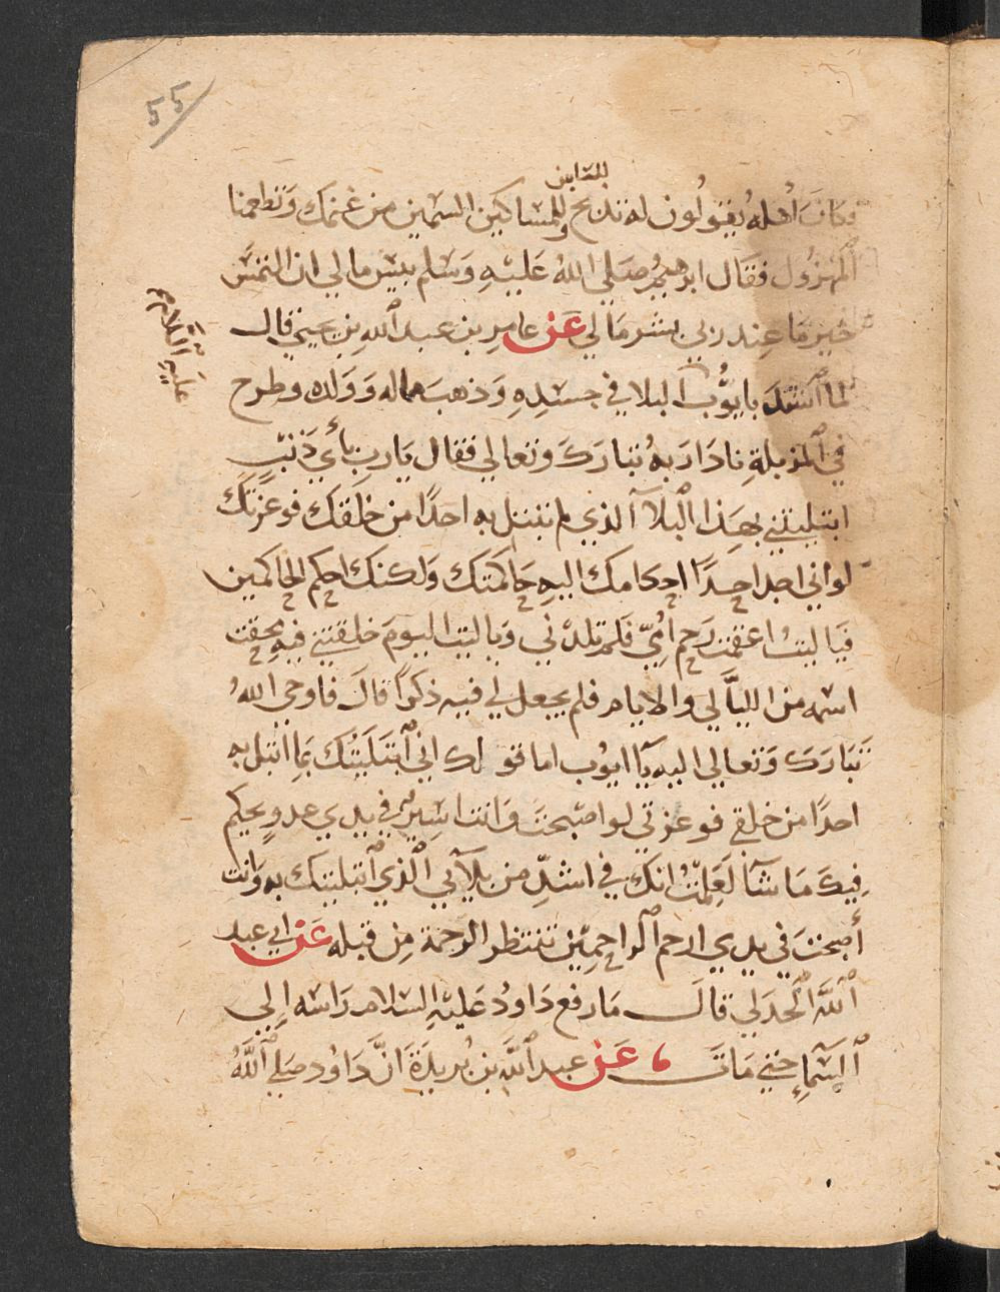 55
للقابن
فكَانَ أهله يقولون له تذبح وللمساكين السمين من غنمك وتطعمنا
المهزول فقال ابرهيمُ صَلى اللهُ عَليْهِ وَسَلم بيس مالي ان التمسَ
خير مَا عِند ربي بشر مَا لي عَن عامِرِ بن عبد ٱللهِ بنِ يحيى قال
لما ٱشتَدَ بايوُّبَ البلا في جسَدِهِ وَذهبَ ماله وَوَلده وطرح
عليهِ السَّلام
في ٱلمزبلةِ نادَا رَبهُ تبَارَكَ وتعالي فقال يَارب بأي ذَنبٍ
ابتليتني بهذا ٱلبلآ ٱلذي لم تبتل به احدًا من خلقك فوعزتك
لو اني اجد احدًا احاكمك اليهِ حَاكمتك وَلكنك احكم الحاكمين
فيَا ليتُ اعقمت رَحم امُيّ فلم تلدني وَيا ليت اليومَ خلقتني فيهِ محِقت
اسمه من الليَّالي والايام فلم يجعل لي فيه ذكراً قالَ فاوحى اللهُ
تبَاركَ وَتعالي اليه يَآ ايوُب اما قولك اني ٱبتلَيتُك بمَا لم ابتل به
احدًا من خلقي فوعزتي لو اصبَحتَ وَانت اسِير في يدي عدوٍ يحكم
فِيكَ مَا شآ لعَلِمْتُ انك في اشدّ من بلآيي ٱلذي ٱبتليتك به وَانت
أصبحتَ في يدي ارحم ٱلراحِمِين تنتظر الرحمة مِن قبله عَن ابي عبد
ٱللهَّ ٱلجَدَلي قالَ مَا رفع دَاودُ عَليْهِ السَلام رَاسَه اِلي
ٱلسَّمآءِ حتي مَاتَ ، عَن عبد ٱللَّه بن بُريدَةَ انَّ دَاوُد صَلي ٱللَّهُ